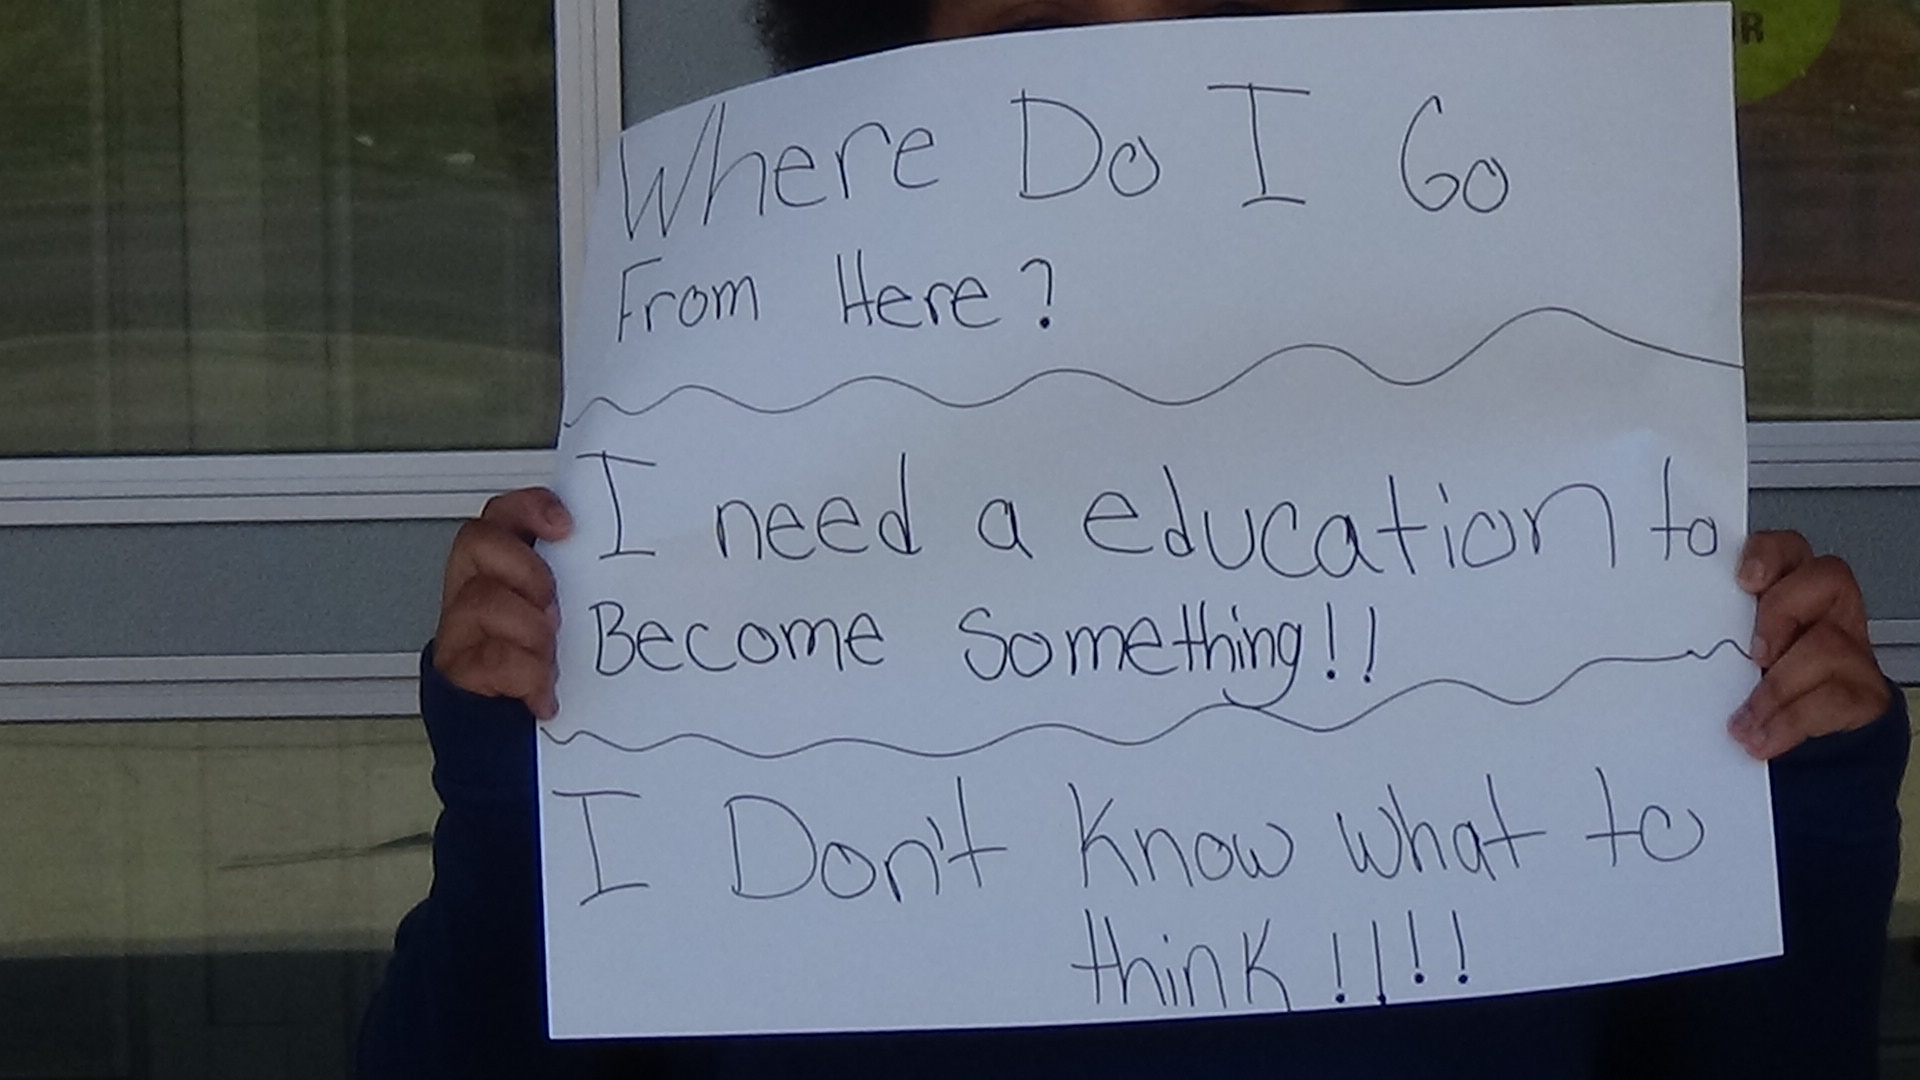 Where Do I Go
From Here?
I need a education to
Become Something!!
I Don't Know what to
think!!!!